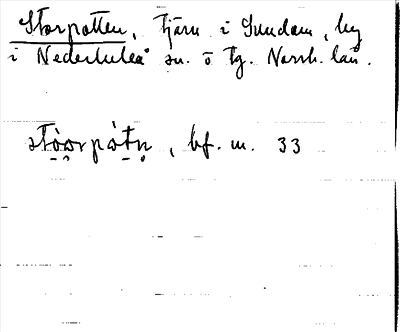 Storpotten, Tjärn i Sundom, by
i Nederluleå sn. o tg. Norrb. län.
bf. m. 33